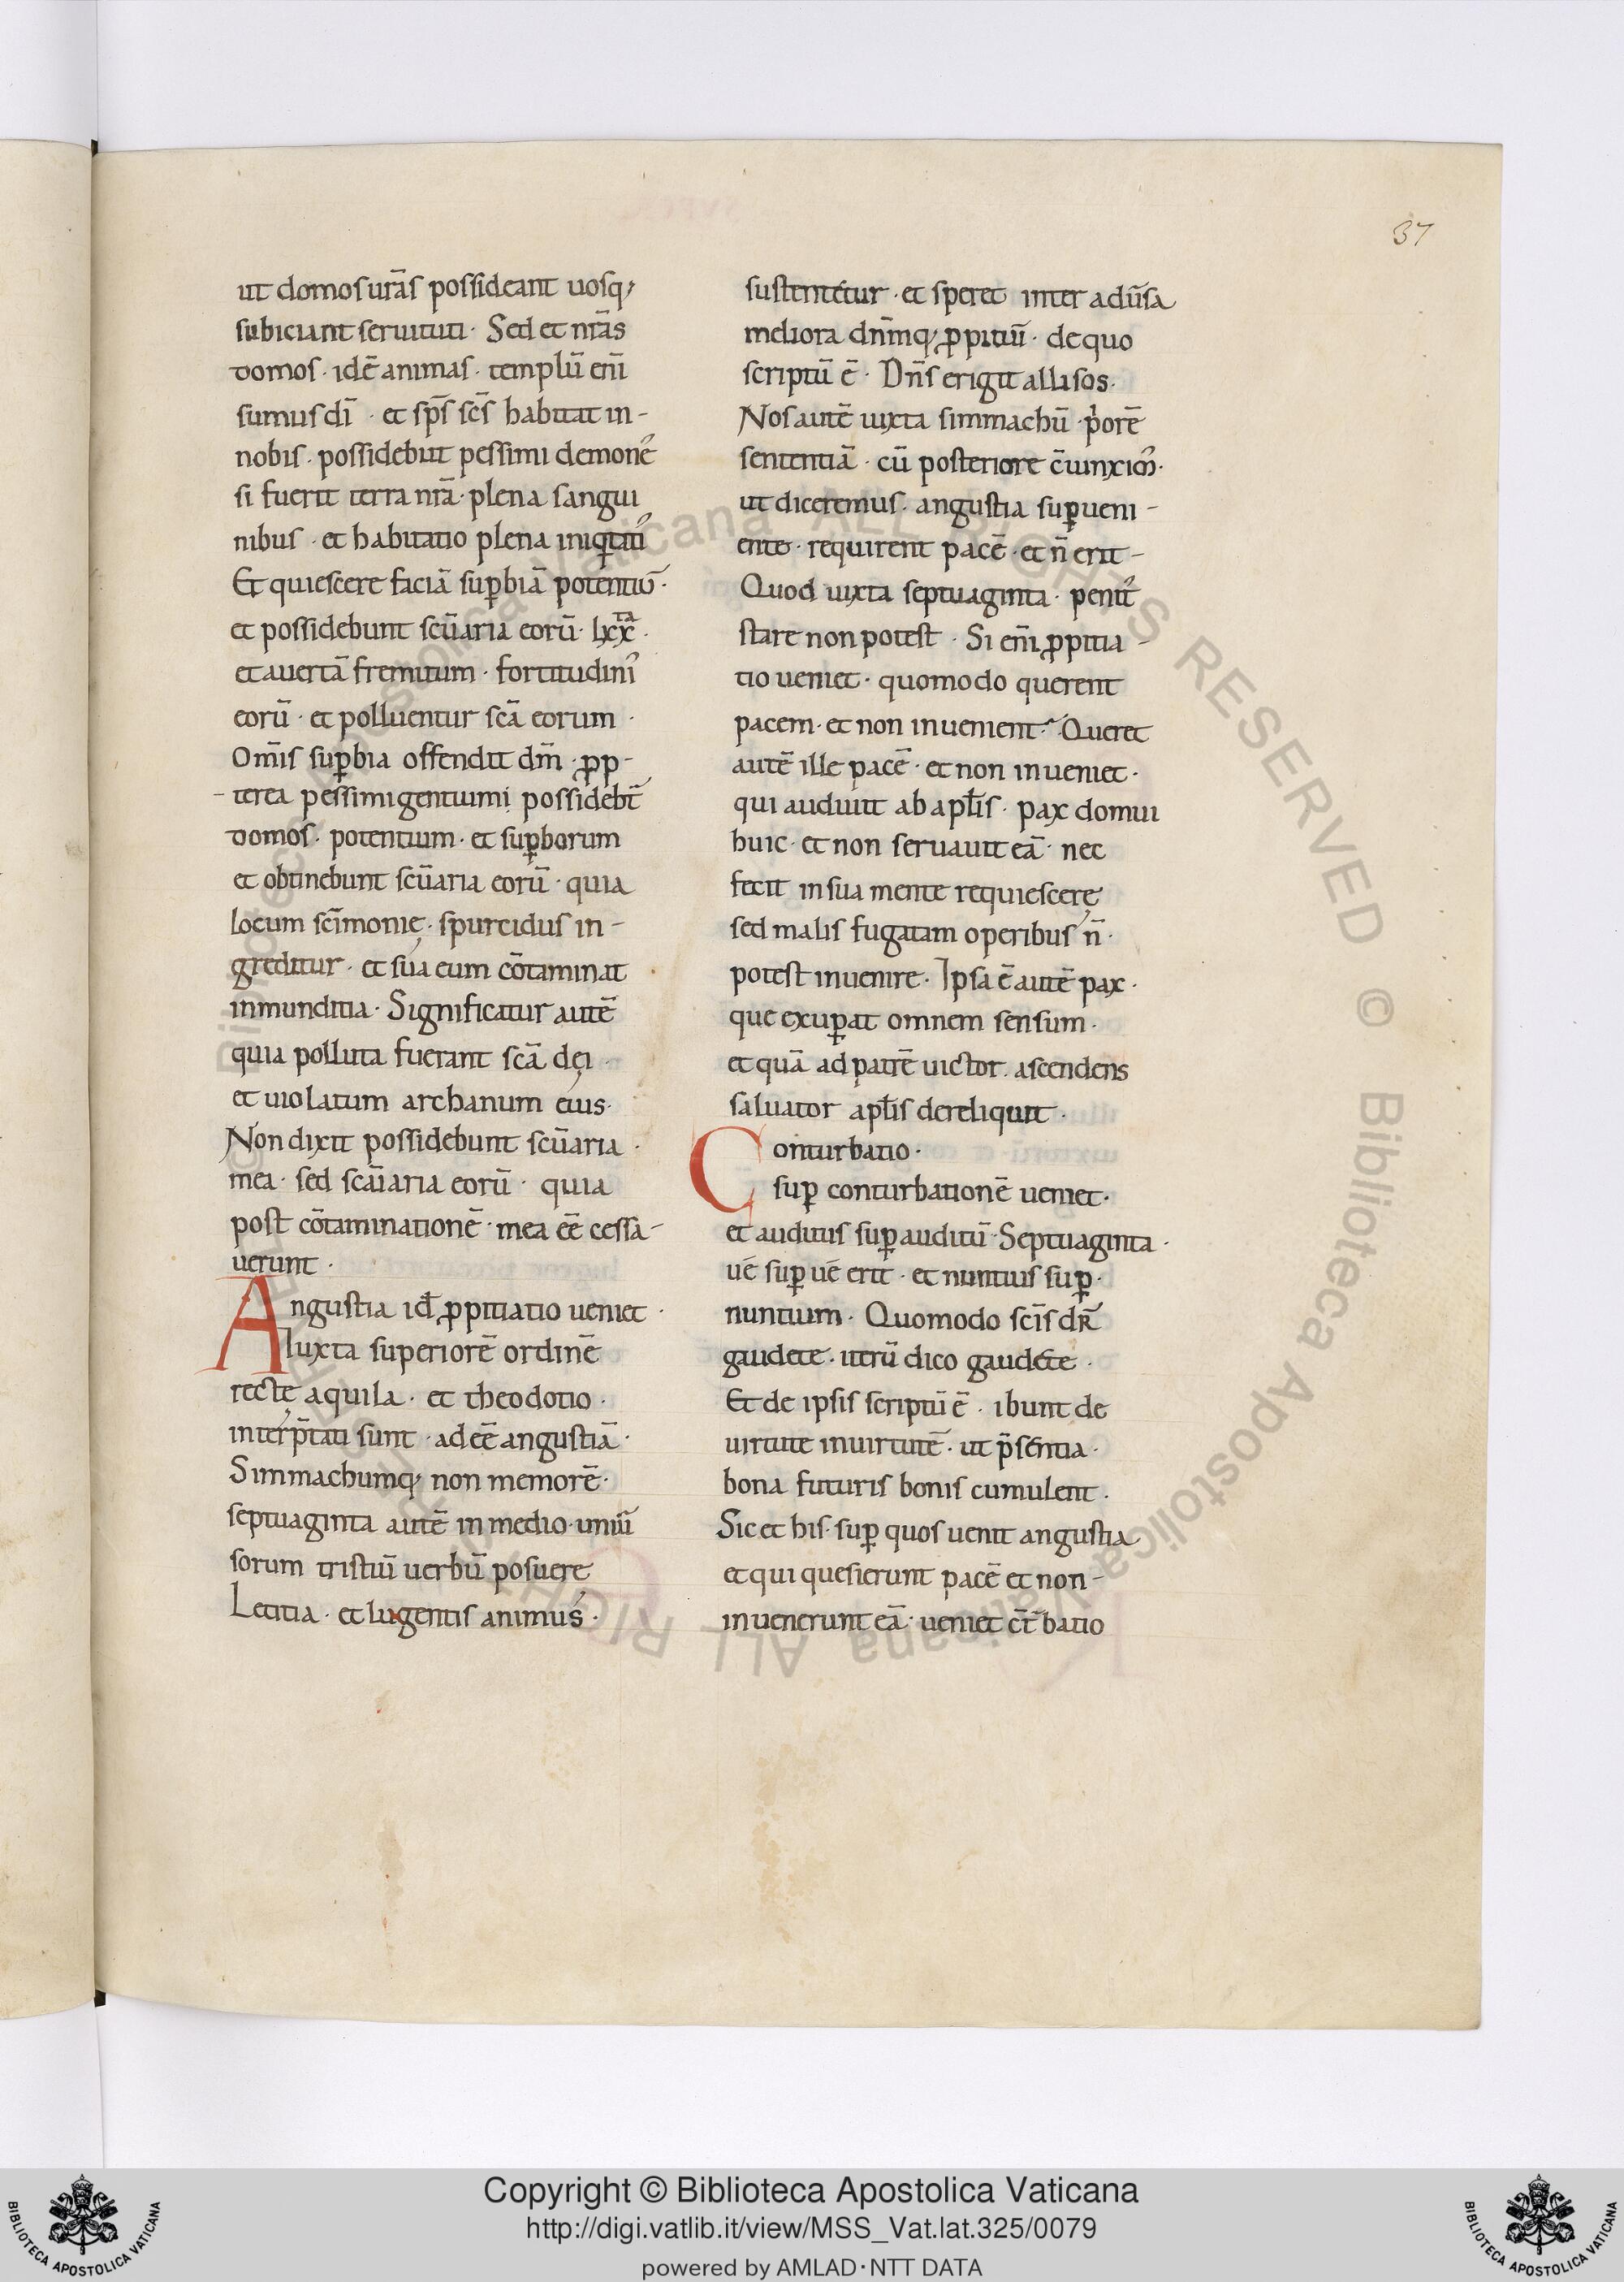 37
ut domos urās possideant uosq;
subiciant seruituti · Sed et nrās
domos · idē animas · templū enī
sumus dī · et sp̄s sc̄s habitat in-
nobis · possidebut pessimi demones
si fuerit terra nrā · plena sangui
nibus · et habitatio plena iniqtati
Et quiescere faciā sup̱biā potentiū ·
et possidebunt scūaria eorū · lxx ·
et auertā fremitum · fortitudinis
eorū · et polluentur scā eorum ·
Om̄is sup̱bia offendit dm̄ · ꝓp-
-terea pessimi gentiumi possidebt̄
domos · potentium · et sup̱borum
et obtinebunt scūaria eorū · quia
locum scīmonię · spurcidus in-
greditur · et sua eum cōtaminat
inmunditia · Significatur autē
quia polluta fuerant scā dei ·
et uiolatum archanum eius ·
Non dixit possidebunt scūaria ·
mea · sed scaīaria eorū · quia
post cōtaminationē · mea eē cessa-
uerunt ·
Angustia id ꝓpitiatio ueniet ·
Iuxta superiorē ordinē
recte aquila · et theodotio ·
interp̄tati sunt · ad eē angustiā ·
Simmachumq; non memorē ·
septuaginta autē in medio · uniūi
sorum tristiū uerbū posuere
Letitia · et lugentis animus ·
sustentetur · et speret inter adūsa
meliora dnm̄q; ꝓpitiū · de quo
scriptū ē · Dn̄s erigit allisos ·
Nos autē iuxta simmachū · p'orē
sententiā · cū posteriore c̄iunxim' ·
ut diceremus · angustia sup̱ueni-
ente · requirent pacē · et n̄ erit-
Quod iuxta septuaginta · penit'
stare non potest · Si enī ꝓpitia-
tio ueniet · quomodo querent
pacem · et non inuenient · Queret
autē ille pacē · et non inueniet ·
qui audiuit ab apl̄is · pax domui
huic · et non seruauit eā · nec
fecit in sua mente requiescere
sed malis fugatam operibus n̄ ·
potest inuenire · Ipsa ē autē pax ·
que exup̱at omnem sensum ·
et quā ad patrē uictor · ascendens
saluator apl̄is dereliquit ·
Conturbatio ·
sup̱ conturbationē ueniet ·
et auditus sup̱ auditū · Septuaginta ·
uē sup̱ uē erit · et nuntius sup̱ ·
nuntium · Quomodo scīs dr̄
gaudete · iterū dico gaudete ·
Et de ipsis scriptū ē · ibunt de
uirtute in uirtutē · ut p̄sentia ·
bona futuris bonis cumulent ·
Sic et his · sup̱ quos uenit angustia
et qui quesierunt pacē et non-
inuenerunt eā · ueniet c̄t̄batio
Copyright © Biblioteca Apostolica Vaticana
http://digi.vatlib.it/view/MSS_Vat.lat.325/0079
powered by AMLAD·NTT DATA
BIBLIOTECA APOSTOLICA VATICANA
BIBLIOTECA APOSTOLICA VATICANA
© Biblioteca Apostolica Vaticana ALL RIGHTS RESERVED © Biblioteca Apostolica Vaticana ALL RIGHTS RESERVED